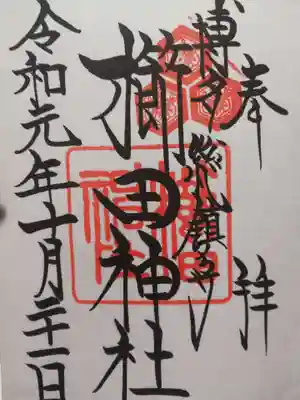 奉拝
博多総鎮守
櫛田神社
令和元年十月二十一日